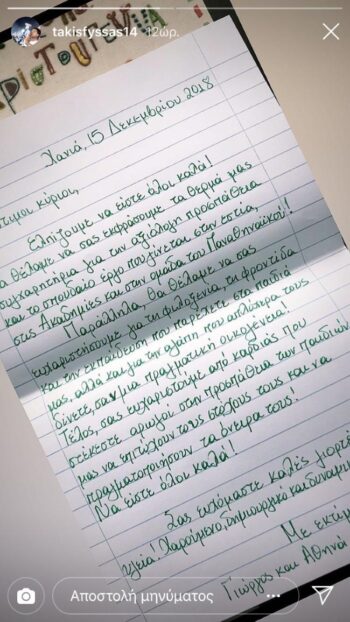 takisfyssas14 12ώρ.
Χανιά, 15 Δεκεμβρίου 2018
κύριοι,
Ελπίζουμε να είστε όλοι καλά!
θέλαμε να σας εκφράσουμε τα θερμά μας
συγχαρητήρια για την αξιόλογη προσπάθεια
και το σπουδαίο έργο που γίνεται στην εστία,
στις Ακαδημίες και στην ομάδα του Παναθηναϊκού!!
Παράλληλα, θα θέλαμε να σας
ευχαριστήσουμε για τη φιλοξενία, τη φροντίδα
και την εκπαίδευση που παρέχετε στα παιδιά
μας, αλλά και για την αγάπη που απλόχερα τους
δίνετε, σαν μια πραγματική οικογένεια!
Τέλος, σας ευχαριστούμε από καρδιάς που
στέκεστε αρωγοί στην προσπάθεια των παιδιών
μας να επιτύχουν τους στόχους τους και να
πραγματοποιήσουν τα όνειρα τους!
Να είστε όλοι καλά!
Σας ευχόμαστε καλές γιορτές
υγεία! Χαρούμενο, δημιουργικό και δυναμικό
Με εκτίμ
Γιώργος και Αθηνά
Αποστολή μηνύματος